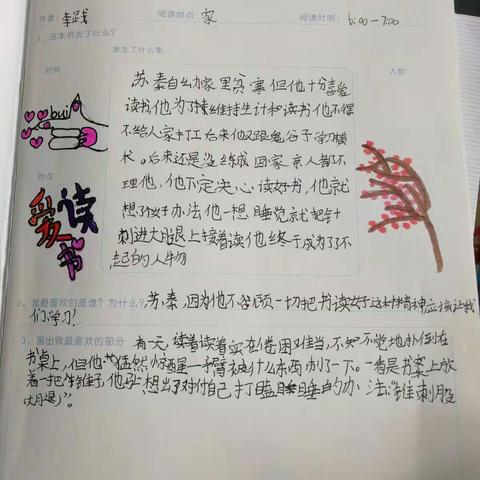 作者：李跶 阅读地点：家 阅读时间：6:00-7:00
1、这本书说了什么？
发生了什么事
时间 人物
苏秦自幼家里贫寒但他十分喜爱
读书,他为了维持生计和读书他不得
不给人家打工后来他又跟鬼谷子学习横
术。后来还是没练成回家亲人都不
理他,他下定决心读好书,他就
想了个好办法他一想睡觉就把针
刺进大腿上接着读他终于成为了了不
起的人物
bui
地点
爱读书
2、我最喜欢的是谁？为什么？苏秦,因为他不谷顾一切把书读好这种精神应该让我
们学习!
3、画出我最喜欢的部分 有一天,读着读着实在倦困难当,不知不觉地扑倒在
书桌上,但他猛然惊醒—手臂被什么东西刺了一下。一看是书案上放
着一把锥子,他马上想出了对付自己打瞌睡的办法:"锥刺股
(大腿)"。